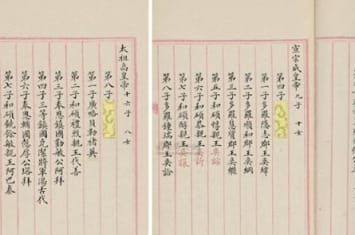 太祖高皇帝 十六子 八女
第八子
第一子廣略貝勒褚英
第二子和碩禮烈親王代善
第三子奉恩鎮國勤敏公阿拜
第四子三等鎮國克潔將軍湯古代
第六子奉恩輔國慤厚公塔拜
第七子和碩饒餘敏親王阿巴泰
宣宗成皇帝九子 十女
第四子
第一子多羅隱志郡王奕緯
第二子多羅順郡王奕綱
第三子多羅慧質郡王奕繼
第五子和碩惇親王奕誴
第六子和碩恭親王奕訢
第七子和碩醇親王奕譞
第八子多羅鍾端郡王奕詥